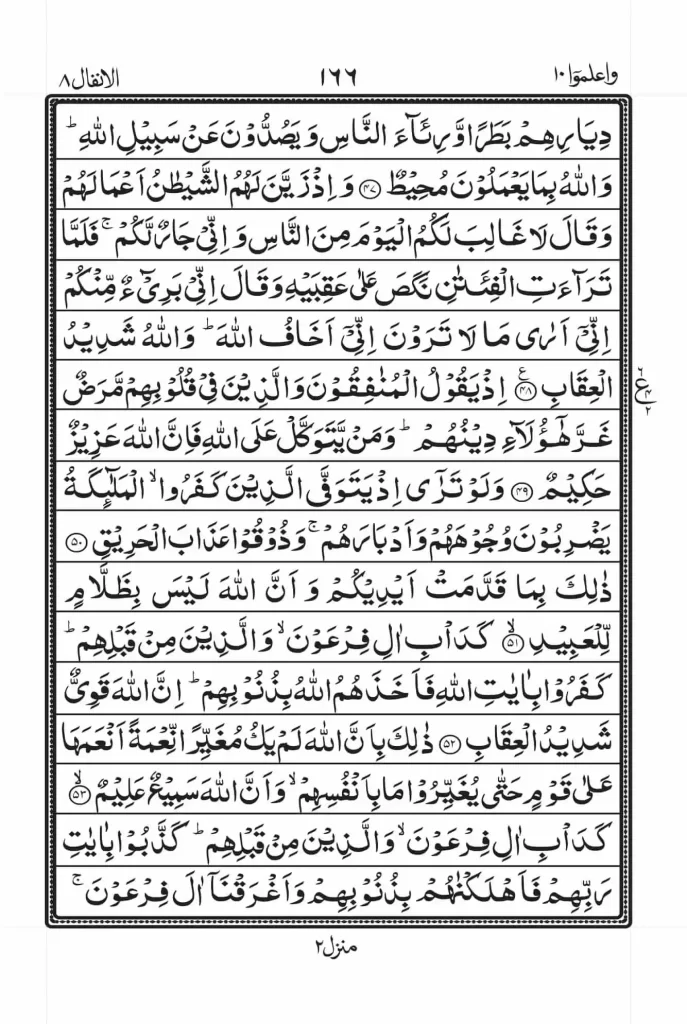 واعلموٓا ١٠ ١٦٦ الانفال ٨
دِيَارِهِمْ بَطَرًا وَّرِئَآءَ النَّاسِ وَيَصُدُّوْنَ عَنْ سَبِيْلِ اللّٰهِ ؕ
وَاللّٰهُ بِمَا يَعْمَلُوْنَ مُحِيْطٌ ﴿۴۷﴾ وَاِذْ زَيَّنَ لَهُمُ الشَّيْطٰنُ اَعْمَالَهُمْ
وَقَالَ لَا غَالِبَ لَكُمُ الْيَوْمَ مِنَ النَّاسِ وَاِنِّيْ جَارٌ لَّكُمْ ۚ فَلَمَّا
تَرَآءَتِ الْفِئَتٰنِ نَكَصَ عَلٰى عَقِبَيْهِ وَقَالَ اِنِّيْ بَرِيْٓءٌ مِّنْكُمْ
اِنِّيْٓ اَرٰى مَا لَا تَرَوْنَ اِنِّيْٓ اَخَافُ اللّٰهَ ؕ وَاللّٰهُ شَدِيْدُ
الْعِقَابِ ﴿۴۸﴾ ع اِذْ يَقُوْلُ الْمُنٰفِقُوْنَ وَالَّذِيْنَ فِيْ قُلُوْبِهِمْ مَّرَضٌ
۲ ع ۴ ۲
غَرَّ هٰٓؤُلَآءِ دِيْنُهُمْ ؕ وَمَنْ يَّتَوَكَّلْ عَلَى اللّٰهِ فَاِنَّ اللّٰهَ عَزِيْزٌ
حَكِيْمٌ ﴿۴۹﴾ وَلَوْ تَرٰٓى اِذْ يَتَوَفَّى الَّذِيْنَ كَفَرُوا ۙ الْمَلٰٓئِكَةُ
يَضْرِبُوْنَ وُجُوْهَهُمْ وَاَدْبَارَهُمْ ۚ وَذُوْقُوْا عَذَابَ الْحَرِيْقِ ﴿۵۰﴾
ذٰلِكَ بِمَا قَدَّمَتْ اَيْدِيْكُمْ وَاَنَّ اللّٰهَ لَيْسَ بِظَلَّامٍ
لِّلْعَبِيْدِ ﴿۵۱﴾ ۙ كَدَاْبِ اٰلِ فِرْعَوْنَ ۙ وَالَّذِيْنَ مِنْ قَبْلِهِمْ ؕ
كَفَرُوْا بِاٰيٰتِ اللّٰهِ فَاَخَذَهُمُ اللّٰهُ بِذُنُوْبِهِمْ ؕ اِنَّ اللّٰهَ قَوِيٌّ
شَدِيْدُ الْعِقَابِ ﴿۵۲﴾ ذٰلِكَ بِاَنَّ اللّٰهَ لَمْ يَكُ مُغَيِّرًا نِّعْمَةً اَنْعَمَهَا
عَلٰى قَوْمٍ حَتّٰى يُغَيِّرُوْا مَا بِاَنْفُسِهِمْ ۙ وَاَنَّ اللّٰهَ سَمِيْعٌ عَلِيْمٌ ﴿۵۳﴾ ۙ
كَدَاْبِ اٰلِ فِرْعَوْنَ ۙ وَالَّذِيْنَ مِنْ قَبْلِهِمْ ؕ كَذَّبُوْا بِاٰيٰتِ
رَبِّهِمْ فَاَهْلَكْنٰهُمْ بِذُنُوْبِهِمْ وَاَغْرَقْنَآ اٰلَ فِرْعَوْنَ ۚ
منزل ۲